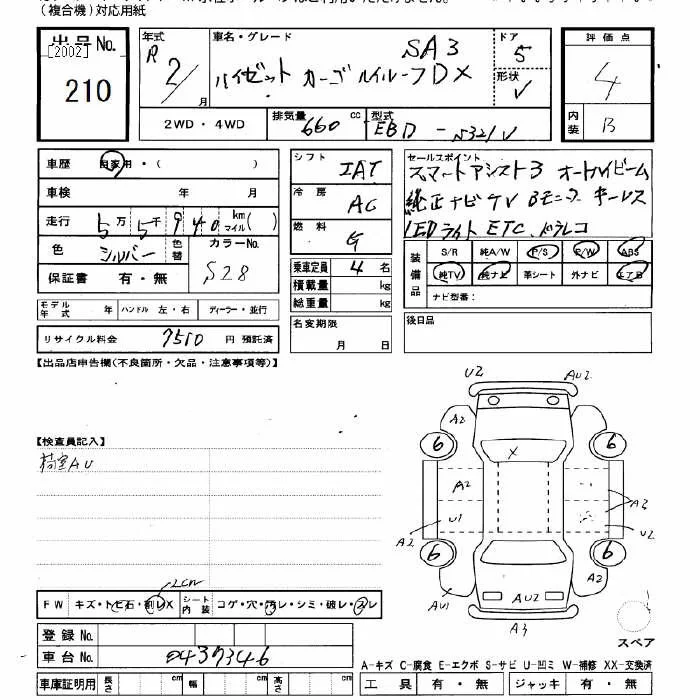 (複合機)対応用紙
出品No.
[2002]
210
年式
R 2/
月
車名・グレード
SA3
ハイゼット カーゴ ハイルーフDX
ドア
5
形状
V
評価点
4
内装
B
2WD・4WD
排気量 660 cc
型式 EBD-S321V
車歴 自家用・( )
車検 年 月
走行 5万5千940 km マイル( )
色 シルバー
色替
カラーNo. S28
保証書 有・無
シフト IAT
冷房 AC
燃料 G
乗車定員 4 名
積載量 kg
総重量 kg
セールスポイント
スマートアシスト3 オートハイビーム
純正ナビ TV Bモニター キーレス
LEDライト ETC、ドラレコ
装備品
S/R 純A/W P/S P/W ABS
純TV 純ナビ 革シート 外ナビ エアB
ナビ型番:
モデル年式 年 ハンドル 左・右 ディーラー・並行
リサイクル料金 7510 円 預託済
名変期限
月 日
後日品
【出品店申告欄(不良箇所・欠品・注意事項等)】
【検査員記入】
荷室AU
U2
AU2
A2
A2
6
6
X
A2
U1
A2
A3
U2
6
6
AU1
A2
AU2
A3
スペア
2cm
FW キズ・トビ石・割レX
シート内装 コゲ・穴・汚レ・シミ・破レ・スレ
登録No.
車台No. 0437346
A-キズ C-腐食 E-エクボ S-サビ U-凹ミ W-補修 XX-交換済
車庫証明用 長さ cm 幅 cm 高さ cm
工具 有・無 ジャッキ 有・無